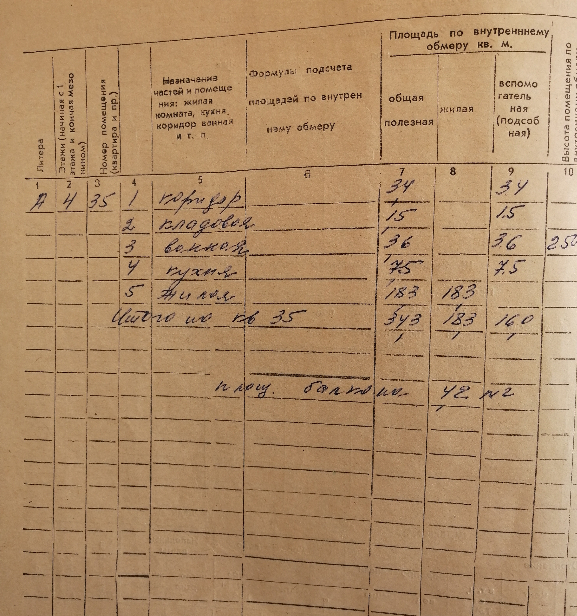 Площадь по внутреннему обмеру кв. м.
Литера
Этажи (начиная с 1 этажа и кончая мезонином)
Номер помещения (квартира и пр.)
Назначения частей и помещения: жилая комната, кухня, коридор ванная и т. п.
Формулы подсчета площадей по внутреннему обмеру
общая полезная
жилая
вспомогательная (подсобная)
Высота помещения по
1 2 3 4 5 6 7 8 9 10
А 4 35 1 коридор 3,4 3,4
2 кладовая 1,5 1,5
3 ванная 3,6 3,6 250
4 кухня 7,5 7,5
5 жилая 18,3 18,3
Итого по кв 35 34,3 18,3 16,0
площ. балкона 4,2 м2